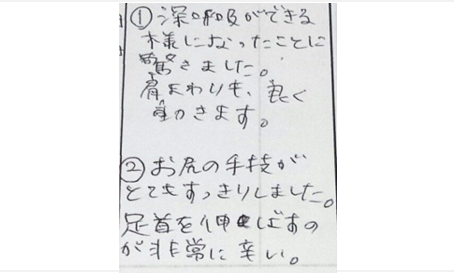 ① 深呼吸ができる
様になったことに
驚きました。
肩まわりも、良く
動きます。
② お尻の手技が
とてもすっきりしました。
足首を伸ばすの
が非常に辛い。